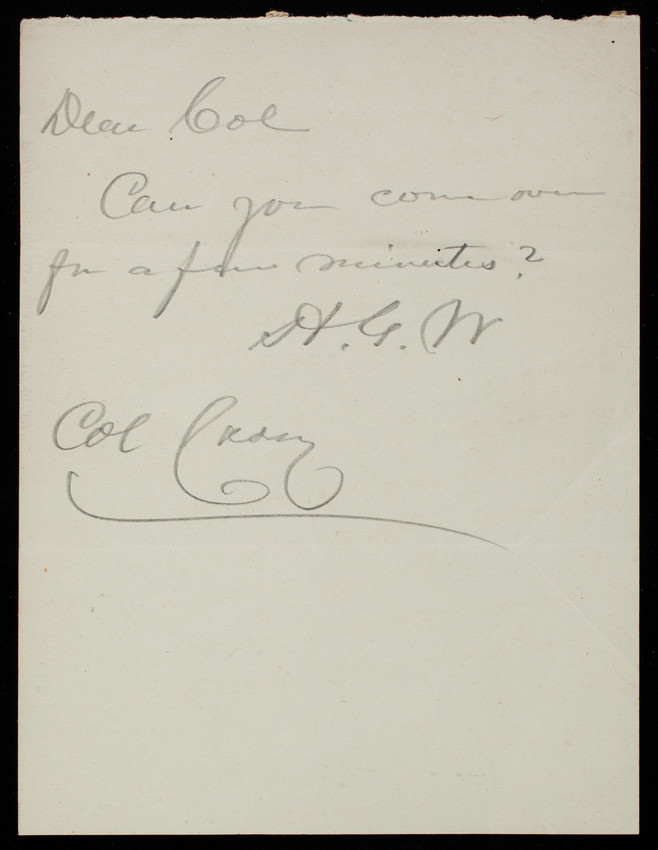 Dear Col
Can you come over
for a few minutes?
H. G. W
Col Casey